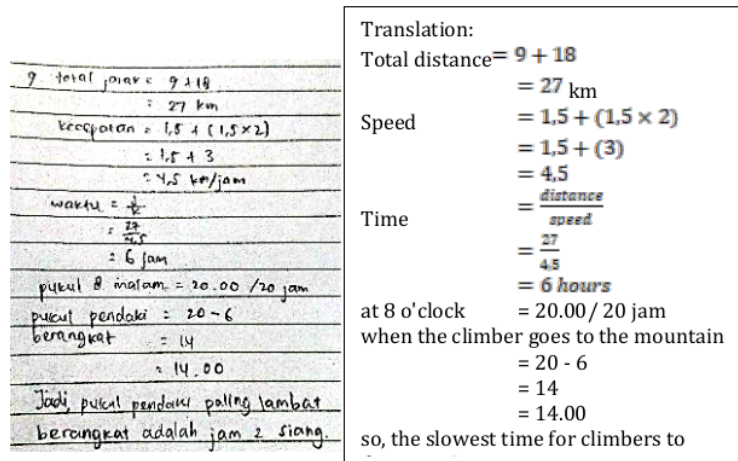 9. total jarak = 9 + 18
= 27 km
kecepatan = 1,5 + (1,5×2)
= 1,5 + 3
= 4,5 km/jam
waktu = J/K
= 27/4,5
= 6 jam
pukul 8 malam = 20.00 /20 jam
pukul pendaki = 20 - 6
berangkat = 14
= 14.00
Jadi, pukul pendaki paling lambat
berangkat adalah jam 2 siang.
Translation:
Total distance = 9 + 18
= 27 km
Speed = 1,5 + (1,5 × 2)
= 1,5 + (3)
= 4,5
Time = distance/speed
= 27/4,5
= 6 hours
at 8 o'clock = 20.00 / 20 jam
when the climber goes to the mountain
= 20 - 6
= 14
= 14.00
so, the slowest time for climbers to